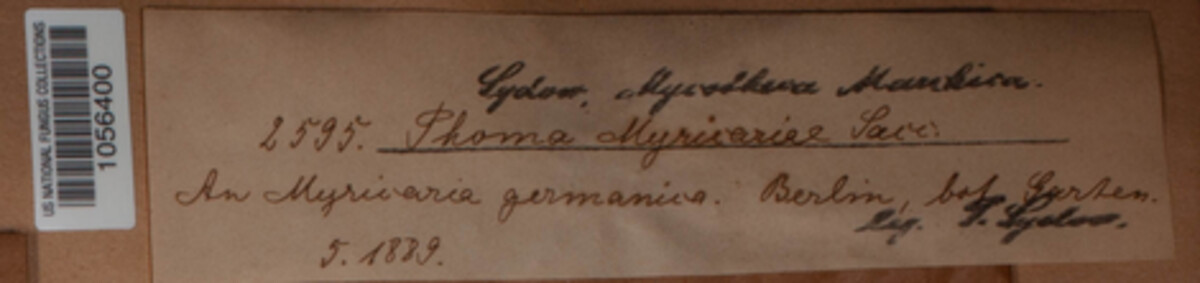 US NATIONAL FUNGUS COLLECTIONS
1056400
Sydow, Mycotheca Marchica.
2595. Phoma Myricariae Sacc.
An Myricaria germanica. Berlin, bot. Garten.
leg. P. Sydow.
5. 1889.